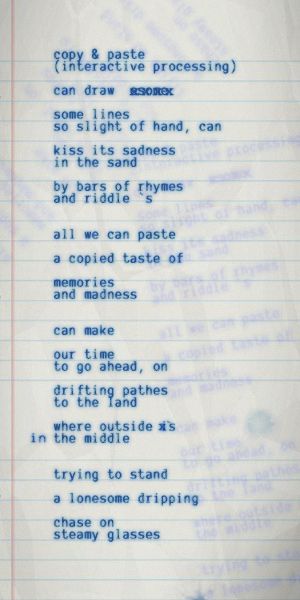 copy & paste
(interactive processing)
can draw
some lines
so slight of hand, can
kiss its sadness
in the sand
by bars of rhymes
and riddle `s
all we can paste
a copied taste of
memories
and madness
can make
our time
to go ahead, on
drifting pathes
to the land
where outside is
in the middle
trying to stand
a lonesome dripping
chase on
steamy glasses